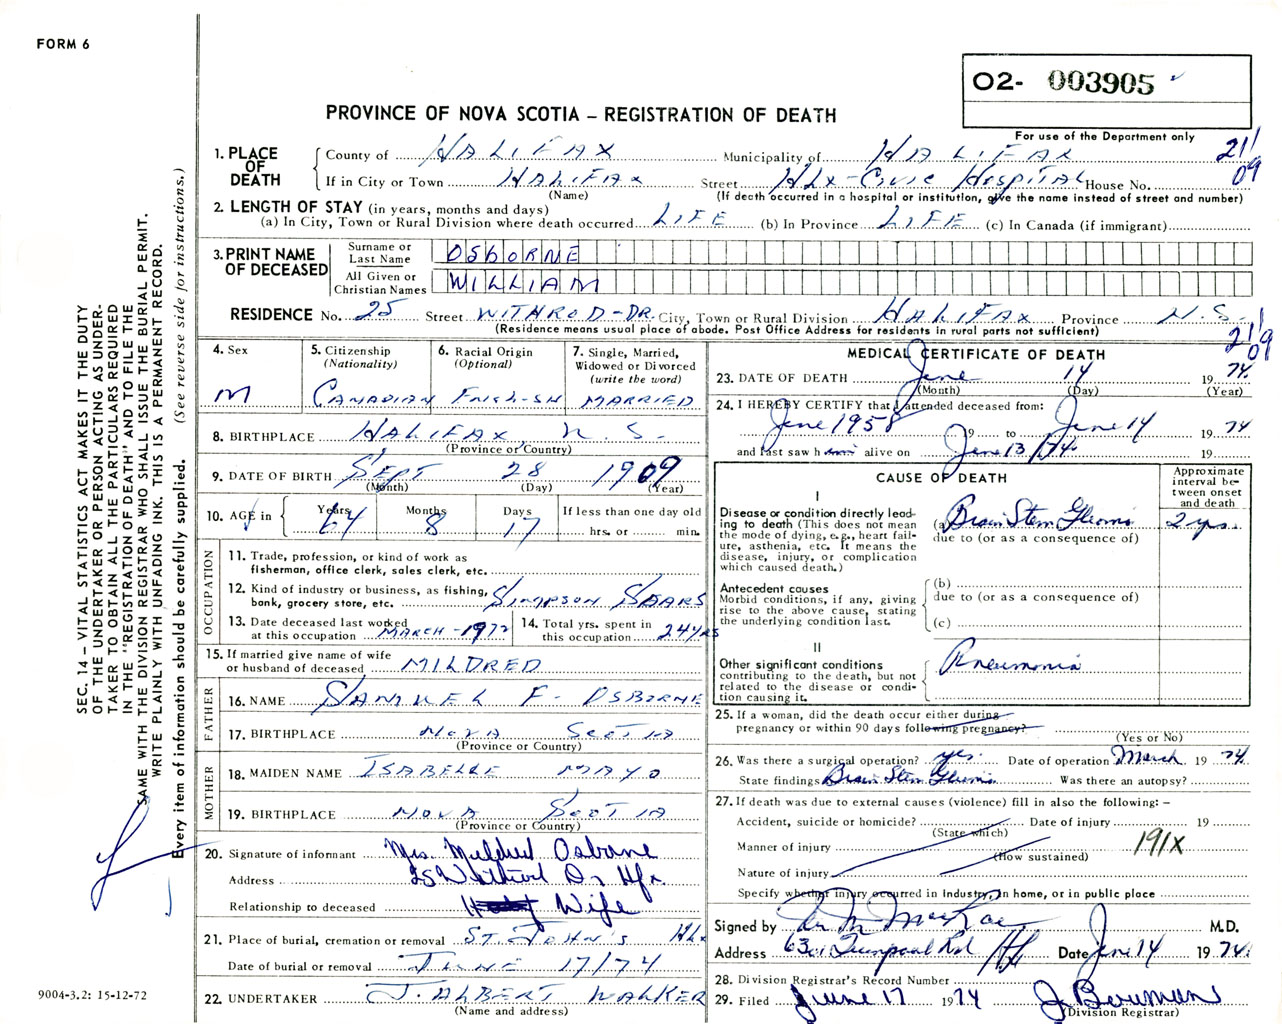 FORM 6
O2- 003905
For use of the Department only
PROVINCE OF NOVA SCOTIA – REGISTRATION OF DEATH
21/09
1. PLACE OF DEATH
County of HALIFAX Municipality of HALIFAX
If in City or Town HALIFAX Street Hfx-Civic Hospital House No.
(Name) (If death occurred in a hospital or institution, give the name instead of street and number)
2. LENGTH OF STAY (in years, months and days)
(a) In City, Town or Rural Division where death occurred LIFE (b) In Province LIFE (c) In Canada (if immigrant)
3. PRINT NAME OF DECEASED
Surname or Last Name OSBORNE
All Given or Christian Names WILLIAM
RESIDENCE No. 25 Street WITHROD-DR. City, Town or Rural Division HALIFAX Province N.S.
(Residence means usual place of abode. Post Office Address for residents in rural parts not sufficient)
21/09
4. Sex M
5. Citizenship (Nationality) CANADIAN
6. Racial Origin (Optional) ENGLISH
7. Single, Married, Widowed or Divorced (write the word) MARRIED
8. BIRTHPLACE HALIFAX, N.S.
(Province or Country)
9. DATE OF BIRTH SEPT 28 1909
(Month) (Day) (Year)
10. AGE in Years 64 Months 8 Days 17 If less than one day old
hrs. or min.
OCCUPATION
11. Trade, profession, or kind of work as
fisherman, office clerk, sales clerk, etc.
12. Kind of industry or business, as fishing,
bank, grocery store, etc. SIMPSON SEARS
13. Date deceased last worked
at this occupation MARCH-1972
14. Total yrs. spent in
this occupation 24 YRS
15. If married give name of wife
or husband of deceased MILDRED
FATHER
16. NAME SAMUEL F. OSBORNE
17. BIRTHPLACE NOVA SCOTIA
(Province or Country)
MOTHER
18. MAIDEN NAME ISABELLE MAYO
19. BIRTHPLACE NOVA SCOTIA
(Province or Country)
20. Signature of informant Mrs. Mildred Osborne
Address 25 Withrod Dr Hfx.
Relationship to deceased Wife
21. Place of burial, cremation or removal ST. JOHN'S Hfx
Date of burial or removal JUNE 17/74
22. UNDERTAKER J. ALBERT WALKER
(Name and address)
MEDICAL CERTIFICATE OF DEATH
23. DATE OF DEATH June 14 1974
(Month) (Day) (Year)
24. I HEREBY CERTIFY that I attended deceased from:
June 1958 19 to June 14 1974
and last saw him alive on June 13/74 19
CAUSE OF DEATH
Approximate interval between onset and death
I
Disease or condition directly leading to death (This does not mean the mode of dying, e.g., heart failure, asthenia, etc. It means the disease, injury, or complication which caused death.)
(a) Brain Stem Glioma 2 yrs.
due to (or as a consequence of)
Antecedent causes
Morbid conditions, if any, giving rise to the above cause, stating the underlying condition last.
(b)
due to (or as a consequence of)
(c)
II
Other significant conditions
contributing to the death, but not related to the disease or condition causing it.
Pneumonia
25. If a woman, did the death occur either during
pregnancy or within 90 days following pregnancy?
(Yes or No)
26. Was there a surgical operation? yes. Date of operation March 1974
State findings Brain Stem Glioma Was there an autopsy?
27. If death was due to external causes (violence) fill in also the following: –
Accident, suicide or homicide? Date of injury 19
(State which)
Manner of injury
(How sustained)
191X
Nature of injury
Specify whether injury occurred in Industry, in home, or in public place
Signed by MacRae M.D.
Address Hfx Date June 14 1974
28. Division Registrar's Record Number
29. Filed June 17 1974 J Bowman
(Division Registrar)
SEC. 14 – VITAL STATISTICS ACT MAKES IT THE DUTY
OF THE UNDERTAKER OR PERSON ACTING AS UNDER-
TAKER TO OBTAIN ALL THE PARTICULARS REQUIRED
IN THE "REGISTRATION OF DEATH" AND TO FILE THE
SAME WITH THE DIVISION REGISTRAR WHO SHALL ISSUE THE BURIAL PERMIT.
WRITE PLAINLY WITH UNFADING INK. THIS IS A PERMANENT RECORD.
Every item of information should be carefully supplied. (See reverse side for instructions.)
9004-3.2: 15-12-72